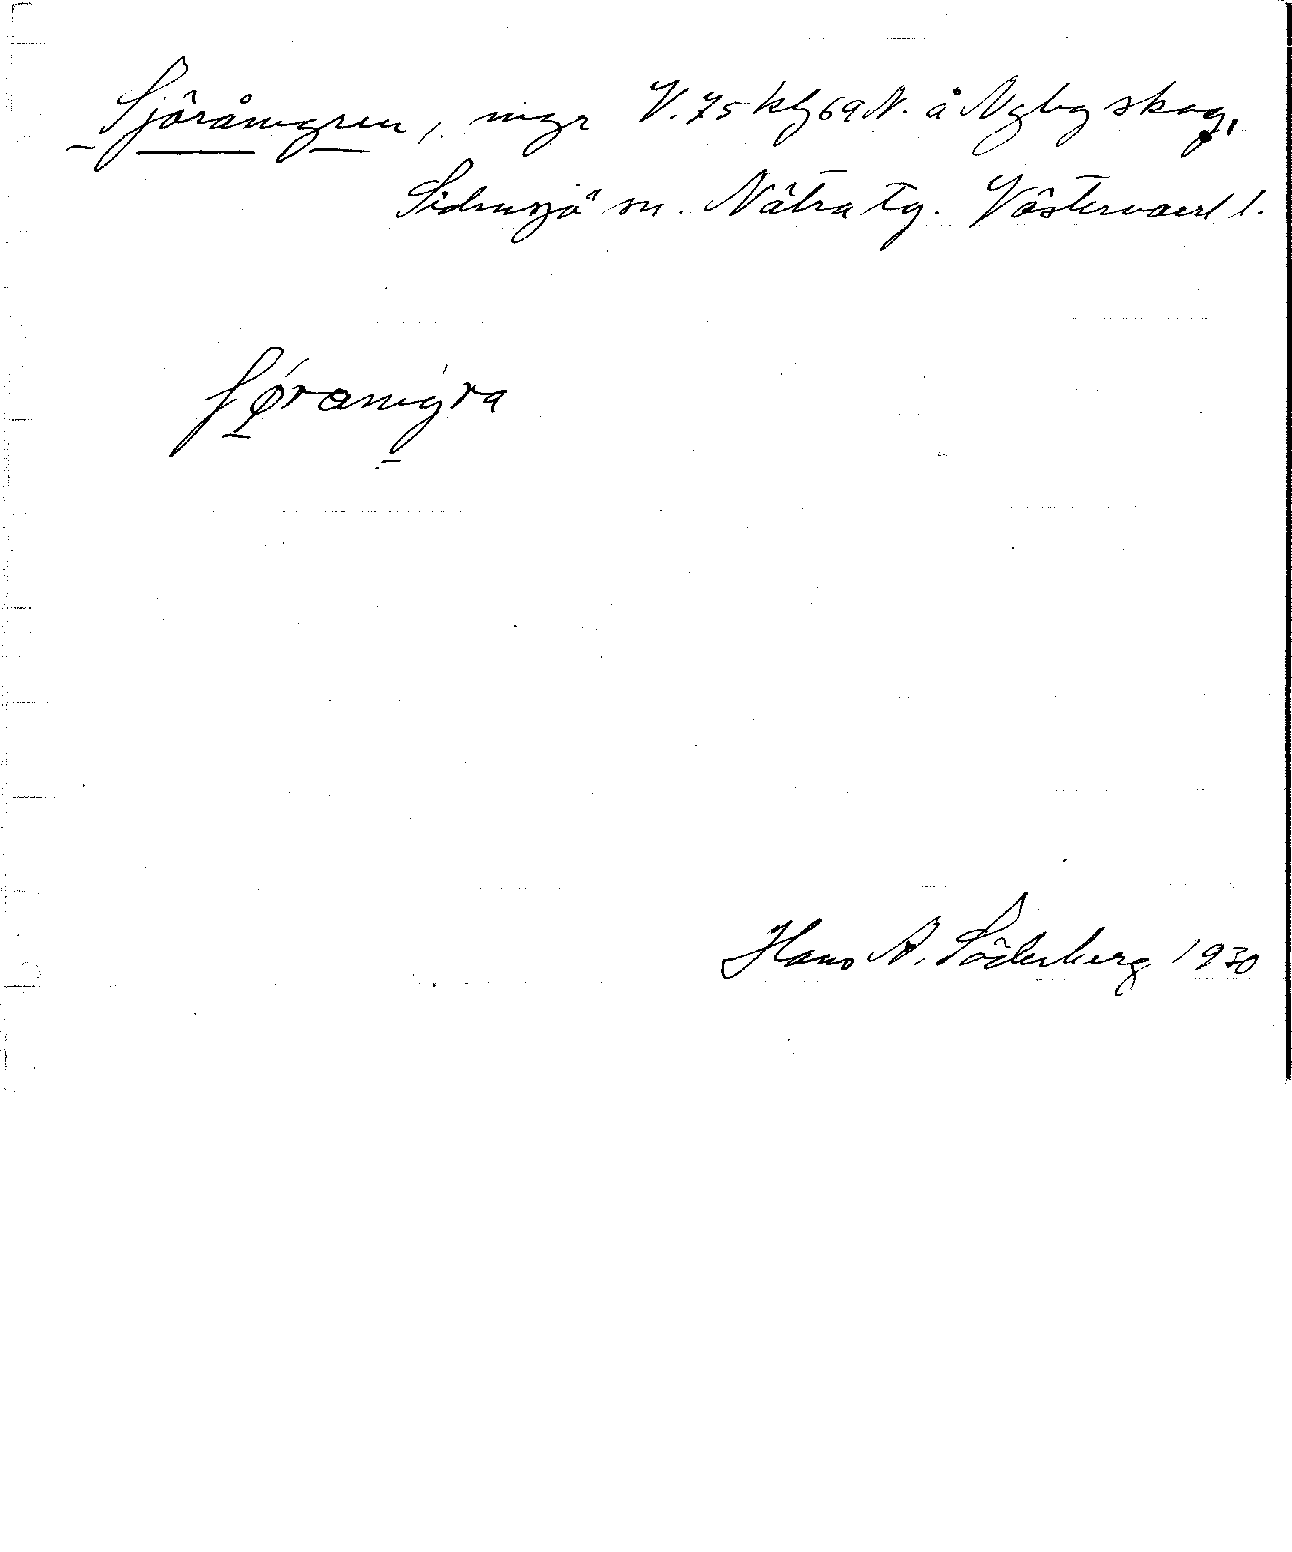 Sjöråmyren, myr V. 75 kf 69 N. å Nyby skog,
Sidensjö sn. Nätra tg. Västernorrl l.
ʃǿramýra
Hans A. Söderberg 1930